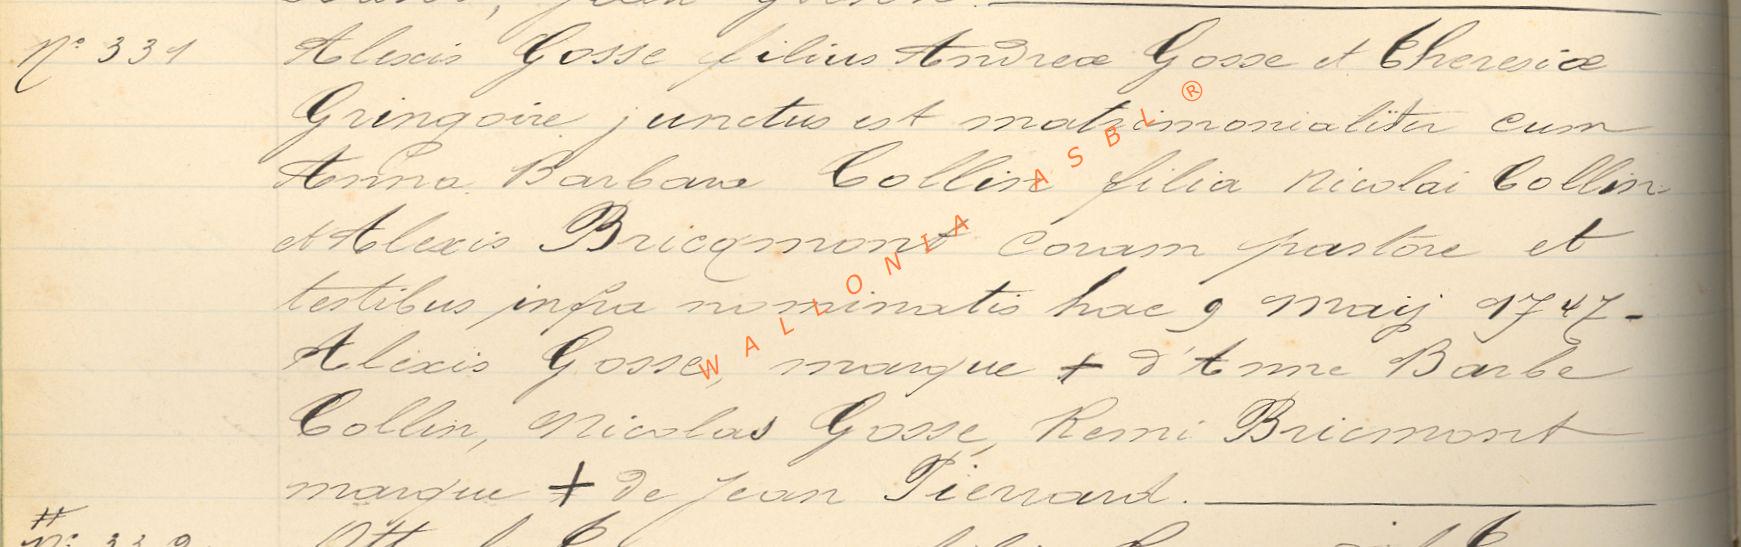 N° 331 Alexis Gosse filius Andreæ Gosse et Theresiæ
Gringoire junctus est matrimonialiter cum
Anna Barbara Collin filia Nicolai Collin
et Alexis Bricqmont coram pastore et
testibus infra nominatis hac 9 Maij 1747-
Alexis Gosse, marque + d'Anne Barbe
Collin, Nicolas Gosse, Remi Bricmont
marque + de Jean Pierrard.
WALLONIA ASBL ®